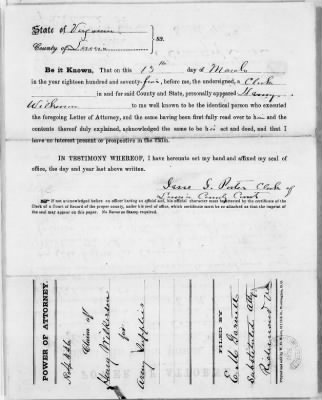 State of Virginia
County of Louisa } SS.
Be it Known, That on this 15th day of March
in the year eighteen hundred and seventy-five, before me, the undersigned, a Clerk
in and for said County and State, personally appeared Henry
Wilkerson to me well known to be the identical person who executed
the foregoing Letter of Attorney, and the same having been first fully read over to him and the
contents thereof duly explained, acknowledged the same to be his act and deed, and that I
have no interest present or prospective in the Claim.
IN TESTIMONY WHEREOF, I have hereunto set my hand and affixed my seal of
office, the day and year last above written.
Jesse J. Porter Clerk of
Louisa County Court
If not acknowledged before an officer having an official seal, his official character must be attested by the certificate of the
Clerk of a Court of Record of the proper county, under his seal of office, which certificate must be so attached as that the imprint of
the seal may appear on this paper. No Revenue Stamp required.
POWER OF ATTORNEY.
Claim of
Henry Wilkerson
for
Army Supplies
FILED BY
Substituted Atty
Richmond Va